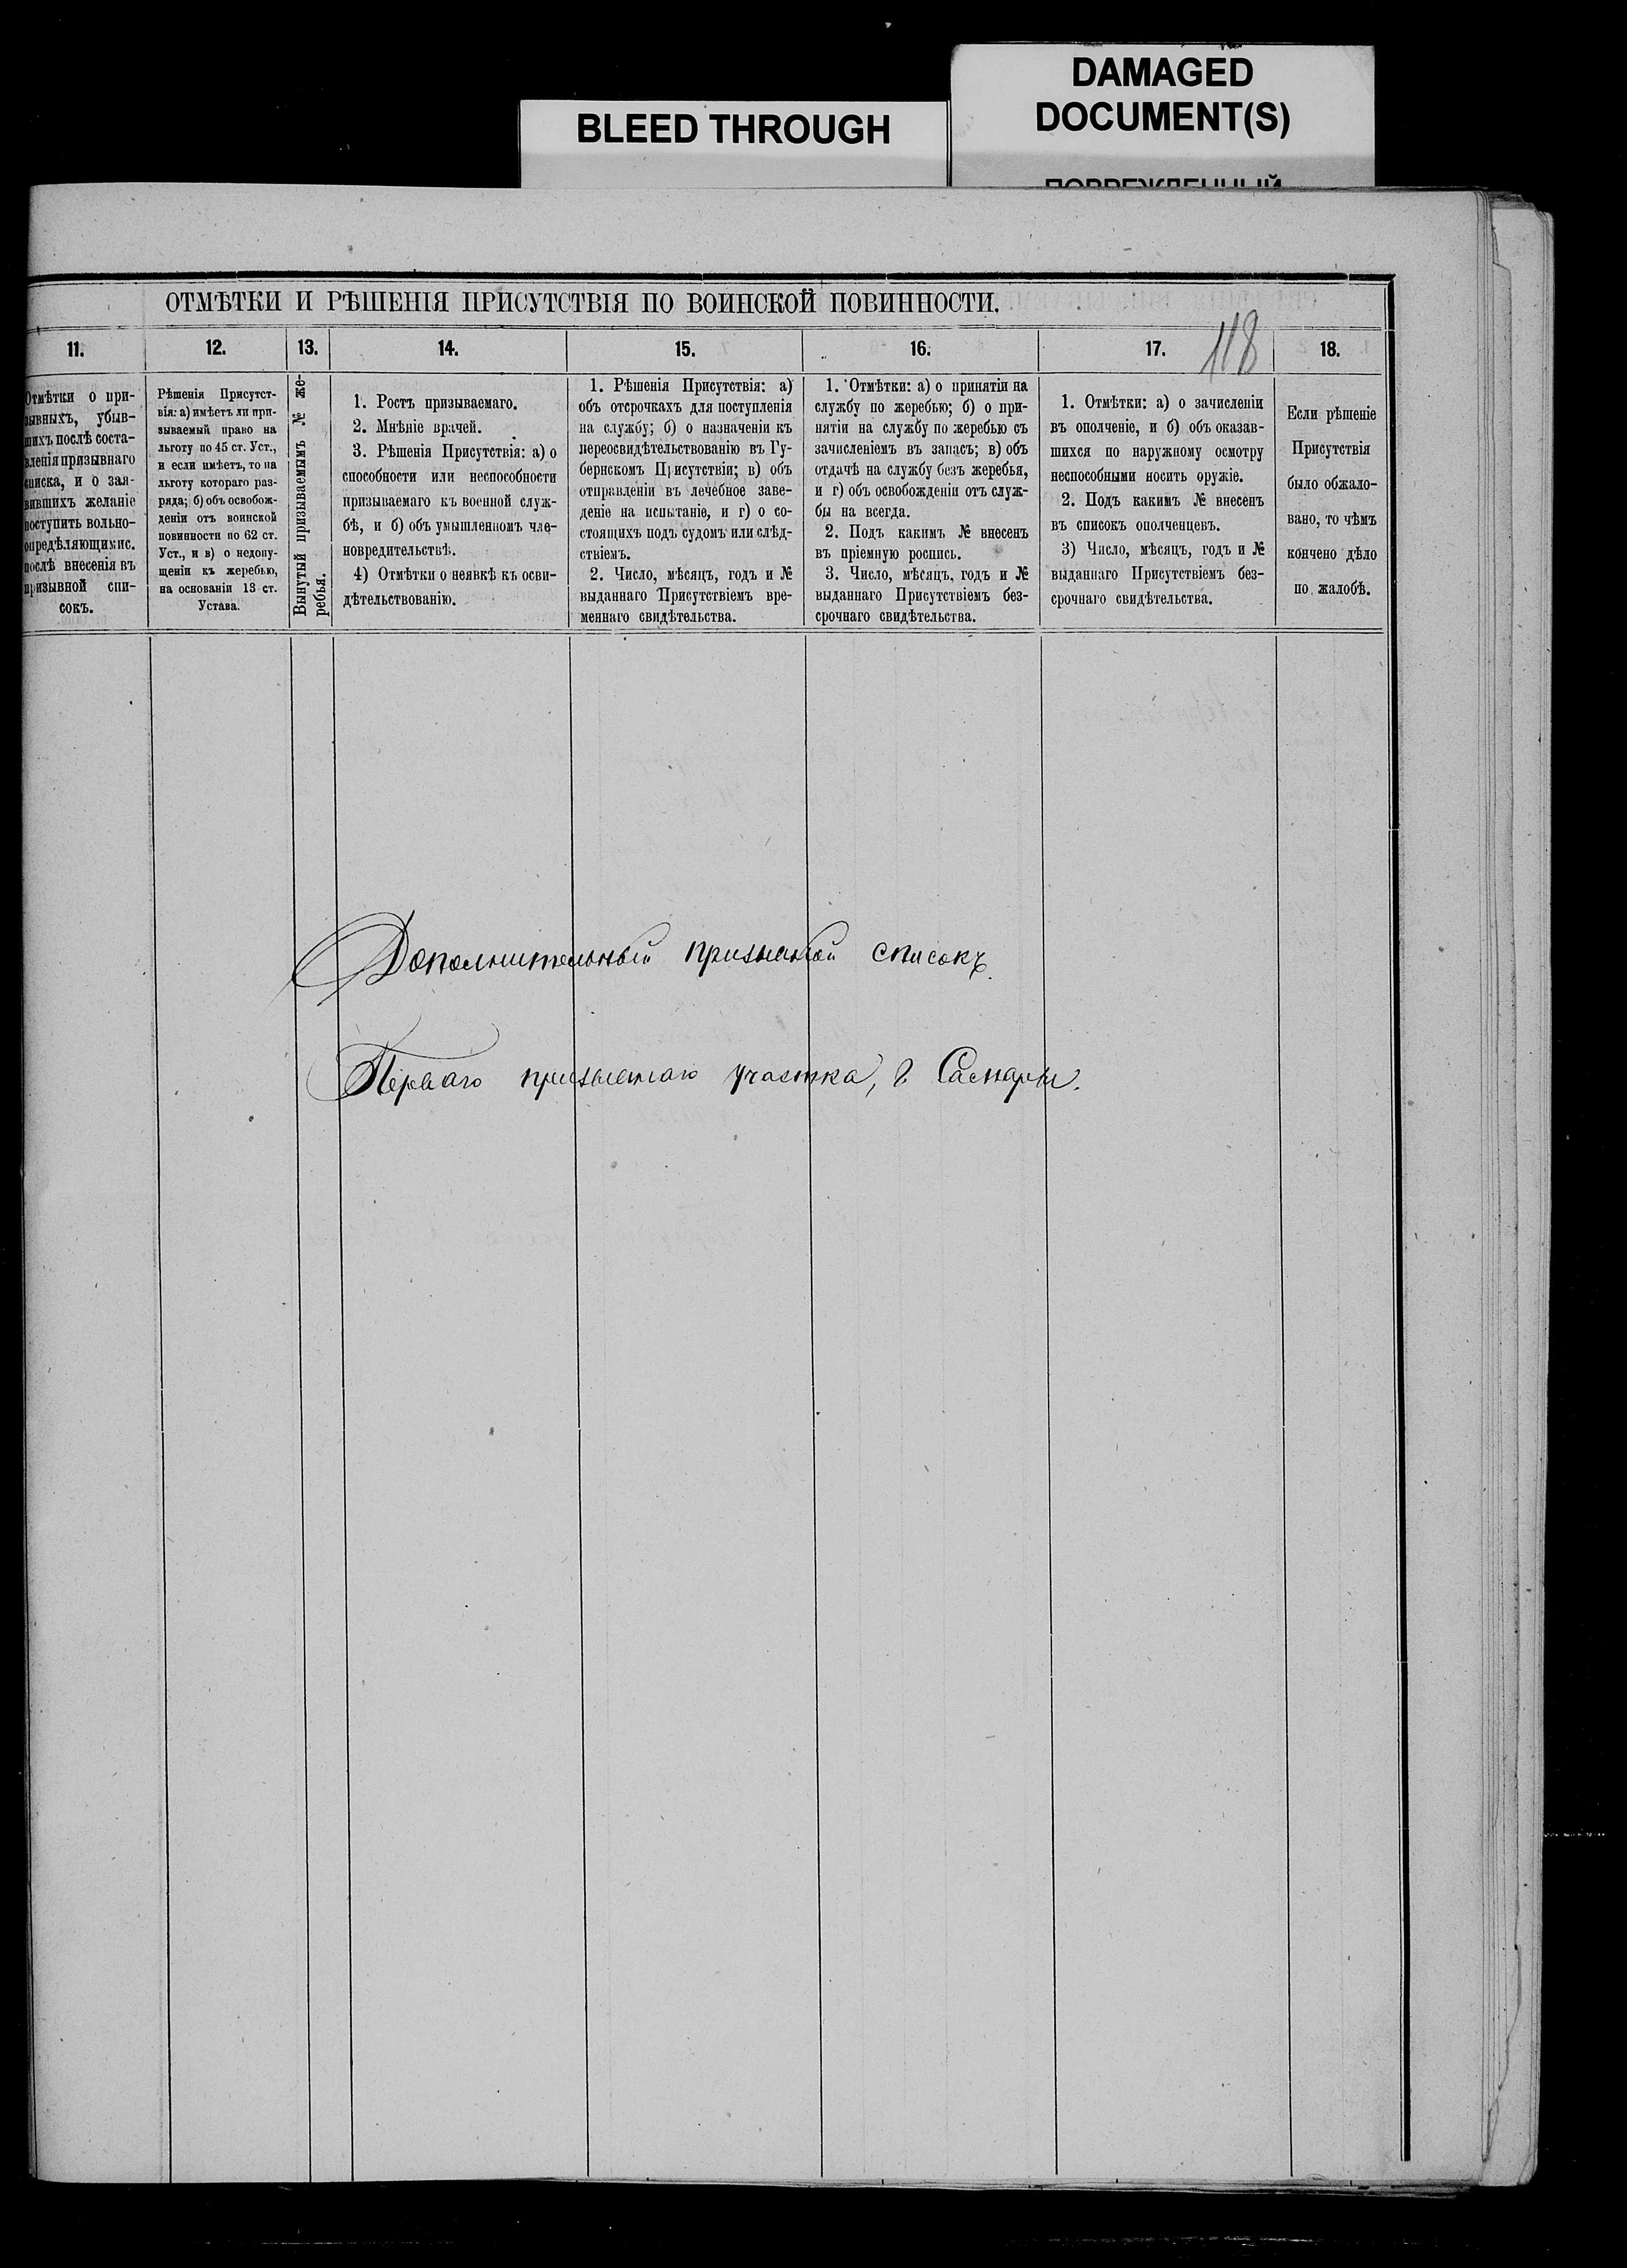 DAMAGED
DOCUMENT(S)
BLEED THROUGH
ПОВРЕЖДЕННЫЙ
ОТМѢТКИ И РѢШЕНІЯ ПРИСУТСТВІЯ ПО ВОИНСКОЙ ПОВИННОСТИ.
118
11.
Отмѣтки о при-
зывныхъ, убыв-
шихъ послѣ соста-
вленія призывнаго
списка, и о зая-
вившихъ желаніе
поступить вольно-
опредѣляющимис.
послѣ внесенія въ
призывной спи-
сокъ.
12.
Рѣшенія Присутст-
вія: а) имѣетъ ли при-
зываемый право на
льготу по 45 ст. Уст.,
и если имѣетъ, то на
льготу котораго раз-
ряда; б) объ освобож-
деніи отъ воинской
повинности по 62 ст.
Уст., и в) о недопу-
щеніи къ жеребью,
на основаніи 13 ст.
Устава.
13.
Вынутый призываемымъ № же-
ребья.
14.
1. Ростъ призываемаго.
2. Мнѣніе врачей.
3. Рѣшенія Присутствія: а) о
способности или неспособности
призываемаго къ военной служ-
бѣ, и б) объ умышленномъ чле-
новредительствѣ.
4) Отмѣтки о неявкѣ къ осви-
дѣтельствованію.
15.
1. Рѣшенія Присутствія: а)
объ отсрочкахъ для поступленія
на службу; б) о назначеніи къ
переосвидѣтельствованію въ Гу-
бернскомъ Присутствіи; в) объ
отправленіи въ лечебное заве-
деніе на испытаніе, и г) о со-
стоящихъ подъ судомъ или слѣд-
ствіемъ.
2. Число, мѣсяцъ, годъ и №
выданнаго Присутствіемъ вре-
меннаго свидѣтельства.
16.
1. Отмѣтки: а) о принятіи на
службу по жеребью; б) о при-
нятіи на службу по жеребью съ
зачисленіемъ въ запасъ; в) объ
отдачѣ на службу безъ жеребья,
и г) объ освобожденіи отъ служ-
бы на всегда.
2. Подъ какимъ № внесенъ
въ пріемную роспись.
3. Число, мѣсяцъ, годъ и №
выданнаго Присутствіемъ без-
срочнаго свидѣтельства.
17.
1. Отмѣтки: а) о зачисленіи
въ ополченіе, и б) объ оказав-
шихся по наружному осмотру
неспособными носить оружіе.
2. Подъ какимъ № внесенъ
въ списокъ ополченцевъ.
3) Число, мѣсяцъ, годъ и №
выданнаго Присутствіемъ без-
срочнаго свидѣтельства.
18.
Если рѣшеніе
Присутствія
было обжало-
вано, то чѣмъ
кончено дѣло
по жалобѣ.
Дополнительный призывной списокъ
Перваго призывнаго участка, г. Самары.